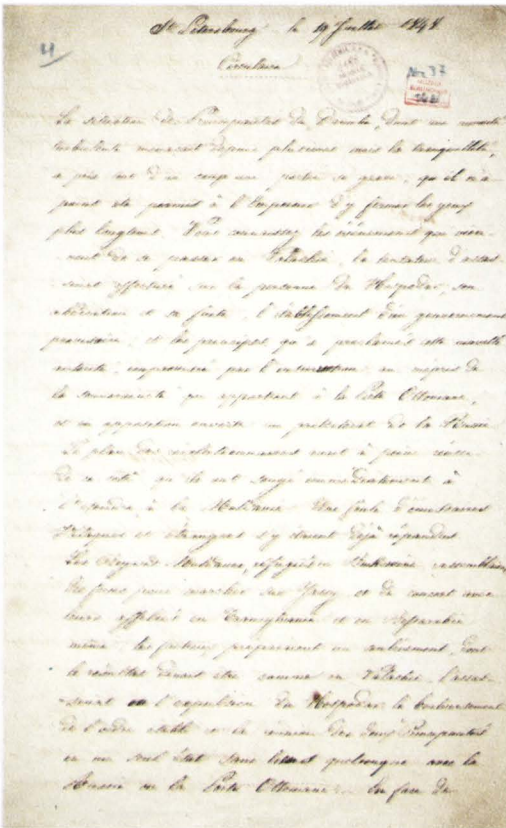 St Petersbourg le 19 Juillet 1848
4
Circulaire
No 37
La situation des Principautés du Danube, dont un
turbulente menaçait depuis plusieurs mois la tranquillité,
a pris tout d'un coup une si grave, qu'il n'a
point été permis à l'Empereur d'y fermer les yeux
plus longtems. Vous connaissez les événemens qui vien-
nent de se passer en Valachie, la tentative d'assas-
sinat effectuée sur la personne du Hospodar, son
abdication et sa fuite, l'établissement d'un gouvernement
provisoire, et les principes qu'a proclamés cette nouvelle
autorité, par l'insurrection, au mépris de
la souveraineté qui appartient à la Porte Ottomane,
et en opposition ouverte au protectorat de la Russie.
Le plan des révolutionnaires avait à peine réussi
de ce côté qu'ils ont songé immédiatement à
l'étendre à la Moldavie. Une foule d'émissaires
Valaques et étrangers s'y étaient déjà répandus.
Les Moldaves, réfugiés en Bukovine, rassemblaient
des forces pour marcher sur Jassy, et de concert avec
leurs affiliés en Transylvanie et en Bessarabie
même, les factieux préparaient un, dont
le résultat devait être comme en Valachie, l'assas-
sinat ou l'expulsion du Hospodar, le bouleversement
de l'ordre établi et la réunion des deux Principautés
en un seul état sans lien quelconque avec la
Russie ou la Porte Ottomane. En face de